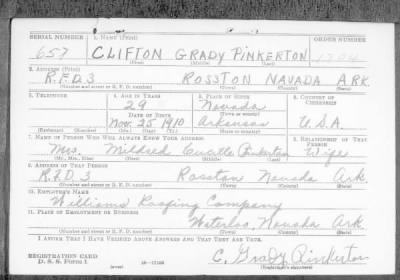 SERIAL NUMBER 1. NAME (Print) ORDER NUMBER
657 CLIFTON GRADY PINKERTON 1704
(First) (Middle) (Last)
2. ADDRESS (Print)
R.F.D. 3 ROSSTON NAVADA ARK
(Number and street or R. F. D. number) (Town) (County) (State)
3. TELEPHONE 4. AGE IN YEARS 5. PLACE OF BIRTH 6. COUNTRY OF CITIZENSHIP
29 Navada
DATE OF BIRTH (Town or county)
Nov. 25 1910 Arkansas U.S.A.
(Exchange) (Number) (Mo.) (Day) (Yr.) (State or country)
7. NAME OF PERSON WHO WILL ALWAYS KNOW YOUR ADDRESS 8. RELATIONSHIP OF THAT PERSON
Mrs. Mildred Pinkerton Wife
(Mr., Mrs., Miss) (First) (Middle) (Last)
9. ADDRESS OF THAT PERSON
R.F.D. 3 Rosston Navada Ark
(Number and street or R. F. D. number) (Town) (County) (State)
10. EMPLOYER'S NAME
Williams Roofing Company
11. PLACE OF EMPLOYMENT OR BUSINESS
Waterloo, Navada Ark
(Number and street or R. F. D. number) (Town) (County) (State)
I AFFIRM THAT I HAVE VERIFIED ABOVE ANSWERS AND THAT THEY ARE TRUE.
REGISTRATION CARD C. Grady Pinkerton
D. S. S. Form 1 (over) (Registrant's signature)